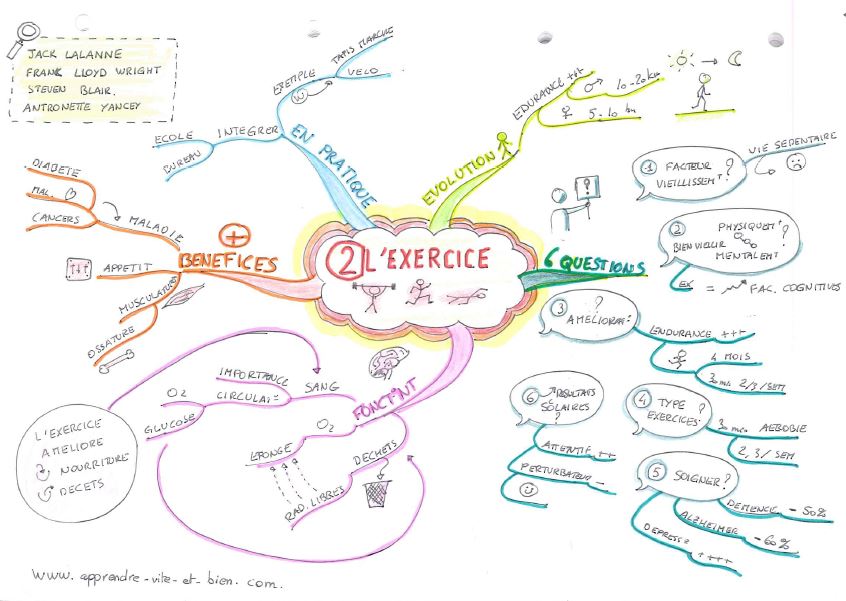 JACK LALANNE
FRANK LLOYD WRIGHT
STEVEN BLAIR.
ANTRONETTE YANCEY
2 L'EXERCICE
EN PRATIQUE
INTEGRER
ECOLE
BUREAU
EXEMPLE
TAPIS MARCHE
VELO
EVOLUTION
EDURANCE +++
♂ 10-20 km
♀ 5-10 km
6 QUESTIONS
1 FACTEUR
VIEILLISSEMT?
VIE SEDENTAIRE
2 PHYSIQUEMT
BIEN VIEILLIR ?
MENTALEMT
EX = FAC. COGNITIVES
3 ?
AMELIORER:
ENDURANCE +++
4 MOIS
30 min 2/3/SEM
4 TYPE
EXERCICES?
30 min AEROBIE
2, 3/SEM
5 SOIGNER?
DEMENCE -50%
ALZHEIMER -60%
DEPRESS° ++++
6 RESULTATS
SCOLAIRES
?
ATTENTIF ++
PERTURBATEUR -
BENEFICES
MALADIE
DIABETE
MAL.
CANCERS
APPETIT
MUSCULATURE
OSSATURE
FONCT°NT
SANG
IMPORTANCE
CIRCULAT°
O2
GLUCOSE
O2
EPONGE
DECHETS
RAD. LIBRES
L'EXERCICE
AMELIORE
NOURRITURE
DECETS
www.apprendre-vite-et-bien.com.